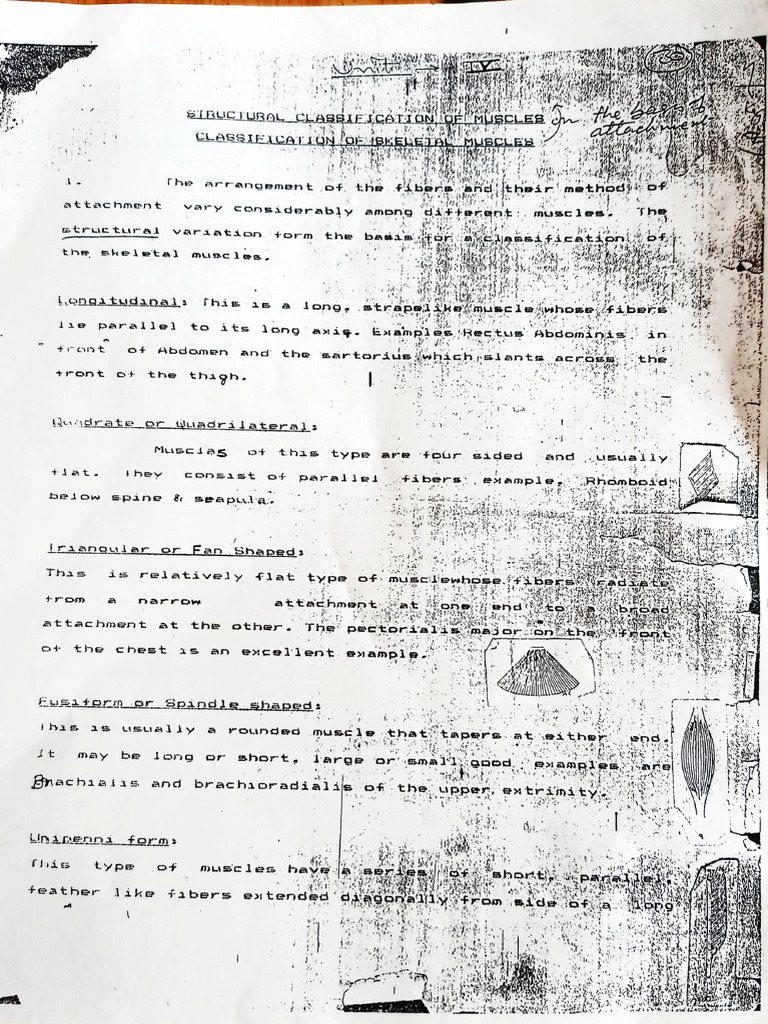 Unit - IV
38
STRUCTURAL CLASSIFICATION OF MUSCLES on the basis of
attachment
CLASSIFICATION OF SKELETAL MUSCLES
1. The arrangement of the fibers and their method of
attachment vary considerably among different muscles. The
structural variation form the basis for a classification of
the skeletal muscles.
Longitudinal: This is a long, strapelike muscle whose fibers
lie parallel to its long axis. Examples Rectus Abdominis in
front of Abdomen and the sartorius which slants across the
front of the thigh.
Quadrate or Quadrilateral:
Musclas of this type are four sided and usually
flat. They consist of parallel fibers example. Rhomboid
below spine & seapula.
Triangular or Fan Shaped:
This is relatively flat type of musclewhose fibers radiate
from a narrow attachment at one end to a broad
attachment at the other. The pectorialis major on the front
of the chest is an excellent example.
Fusiform or Spindle shaped:
This is usually a rounded muscle that tapers at either end.
It may be long or short, large or small good examples are
Brachialis and brachioradialis of the upper extrimity.
Unipenni form:
This type of muscles have a series of short, parallel,
feather like fibers extended diagonally from side of a long